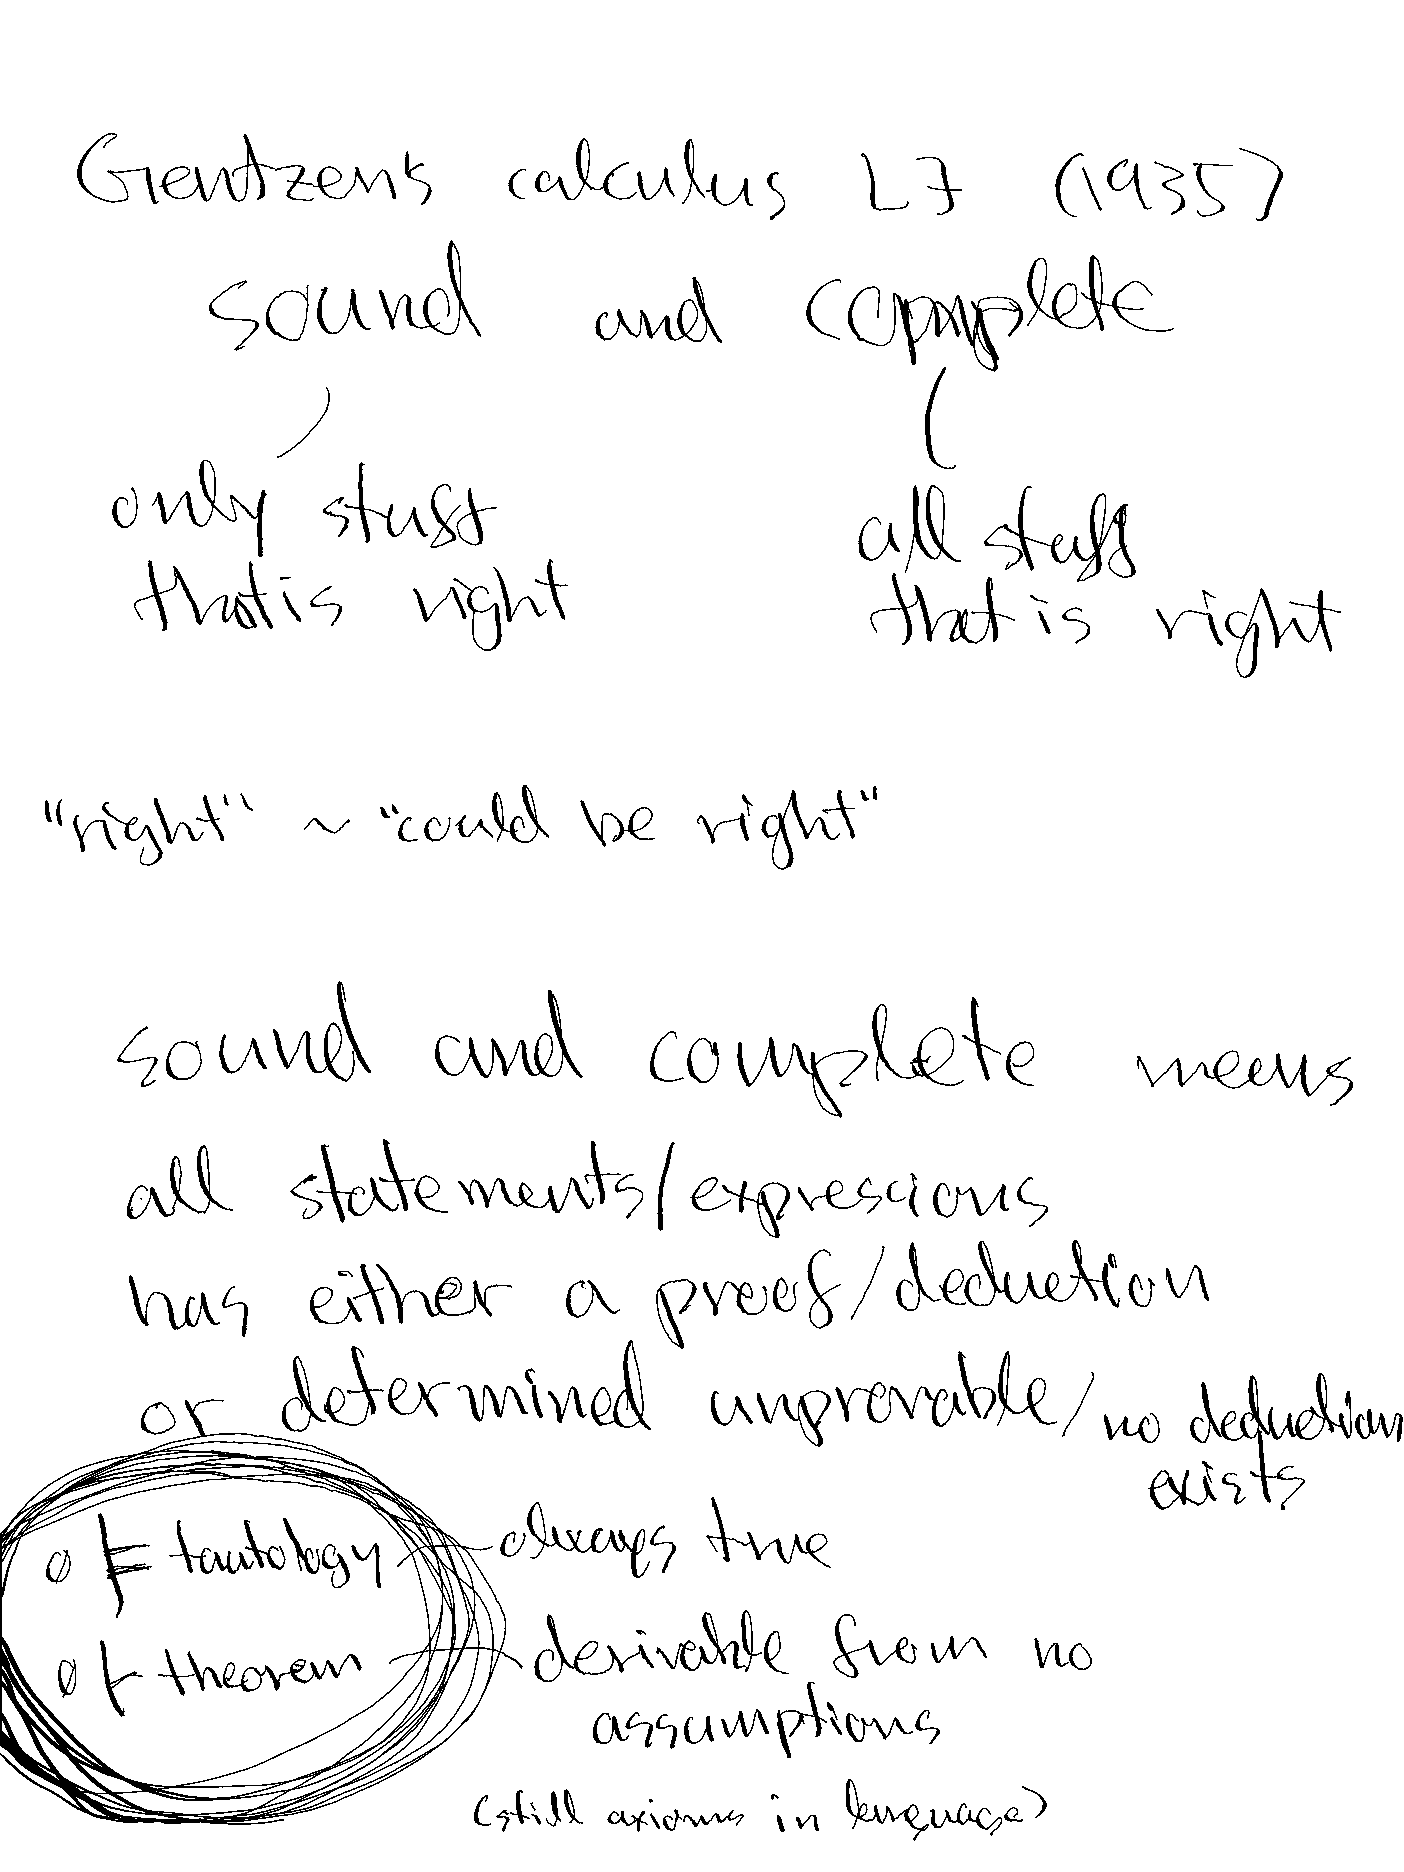 Gentzens calculus LJ (1935)
sound and complete
only stuff
that is right
all stuff
that is right
"right" ~ "could be right"
sound and complete means
all statements/expressions
has either a proof/deduction
or determined unprovable/no deduction
exists
∅ ⊨ tautology - always true
∅ ⊢ theorem - derivable from no
assumptions
(still axioms in language)